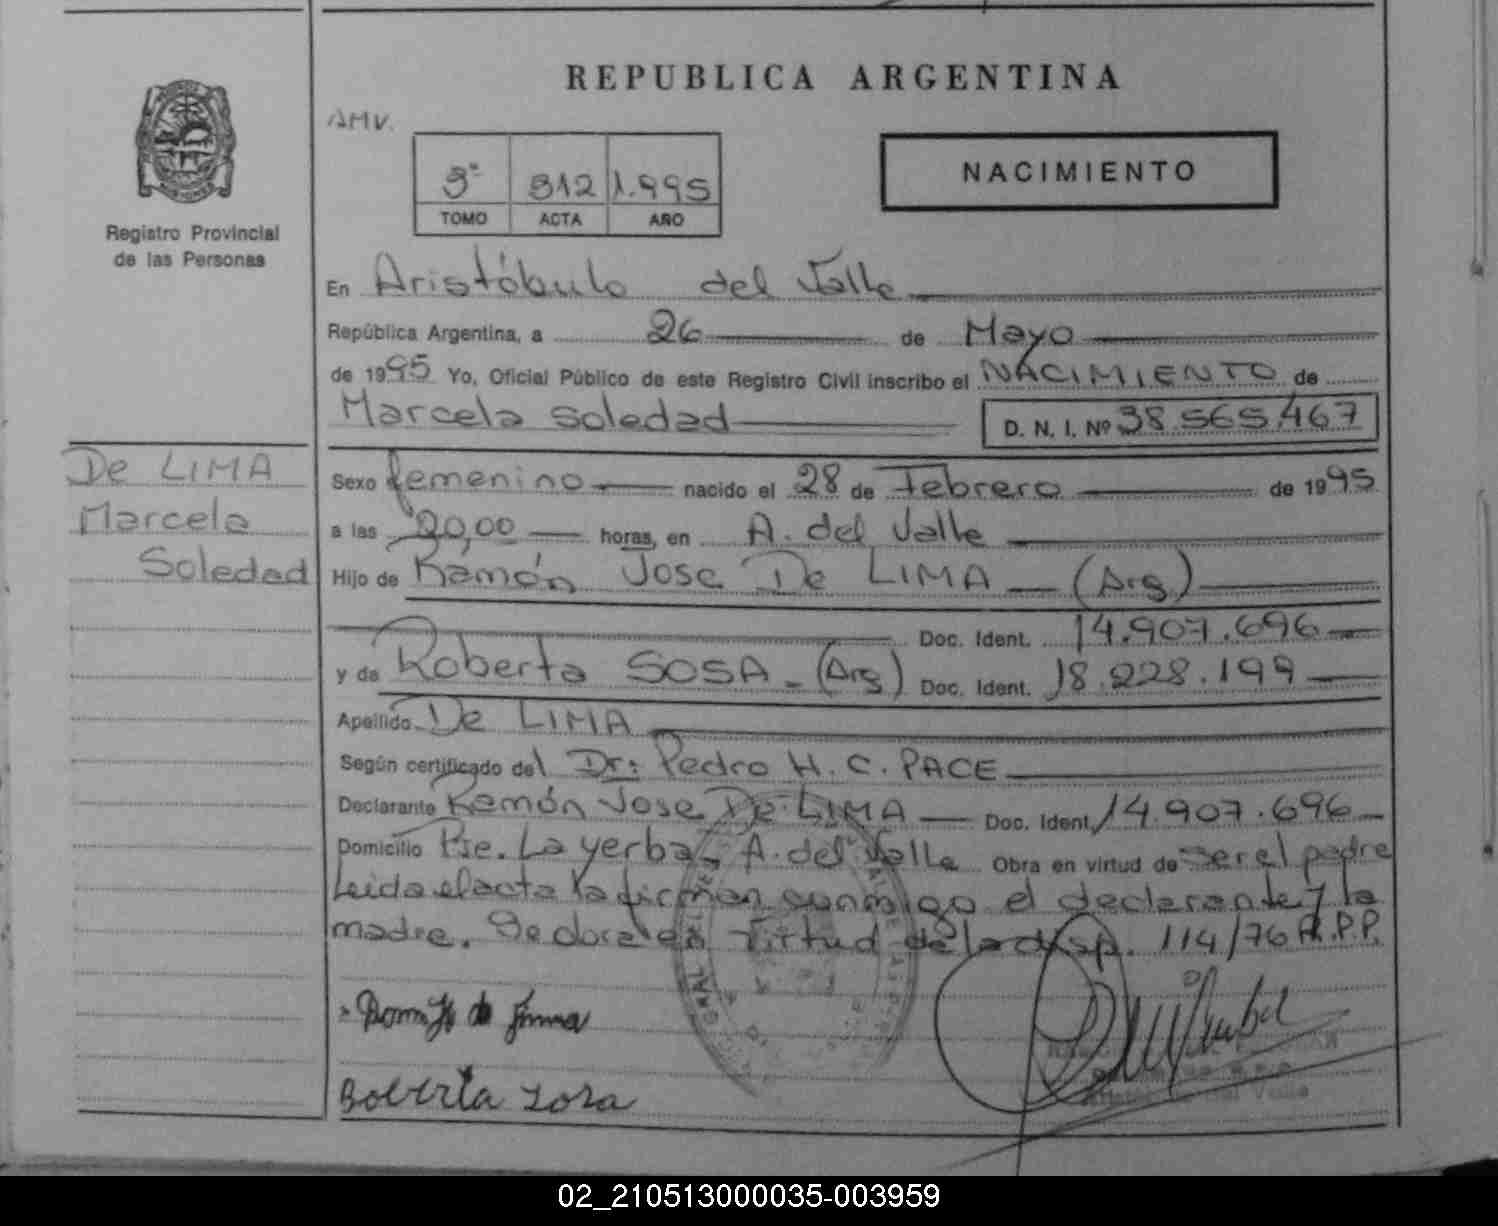 REPUBLICA ARGENTINA
AMV.
3º 312 1.995
TOMO ACTA AÑO
NACIMIENTO
Registro Provincial
de las Personas
En Aristóbulo del Valle
República Argentina, a 26 de Mayo
de 1995 Yo, Oficial Público de este Registro Civil inscribo el NACIMIENTO de
Marcela Soledad D. N. I. Nº 38.565.467
De LIMA
Marcela
Soledad
Sexo femenino nacido el 28 de Febrero de 1995
a las 20,00 horas, en A. del Valle
Hijo de Ramón Jose De LIMA (Arg)
Doc. Ident. 14.907.696
y de Roberta SOSA - (Arg) Doc. Ident. 18.228.199
Apellido De LIMA
Según certificado del Dr: Pedro H. C. PACE
Declarante Ramón Jose De LIMA Doc. Ident. 14.907.696
Domicilio Pje. La yerba - A. del Valle Obra en virtud de ser el padre
Leida el acta la firman conmigo el declarante y la
madre. Se obra en virtud de la disp. 114/76 R.P.P.
Roberta Sosa
02_210513000035-003959